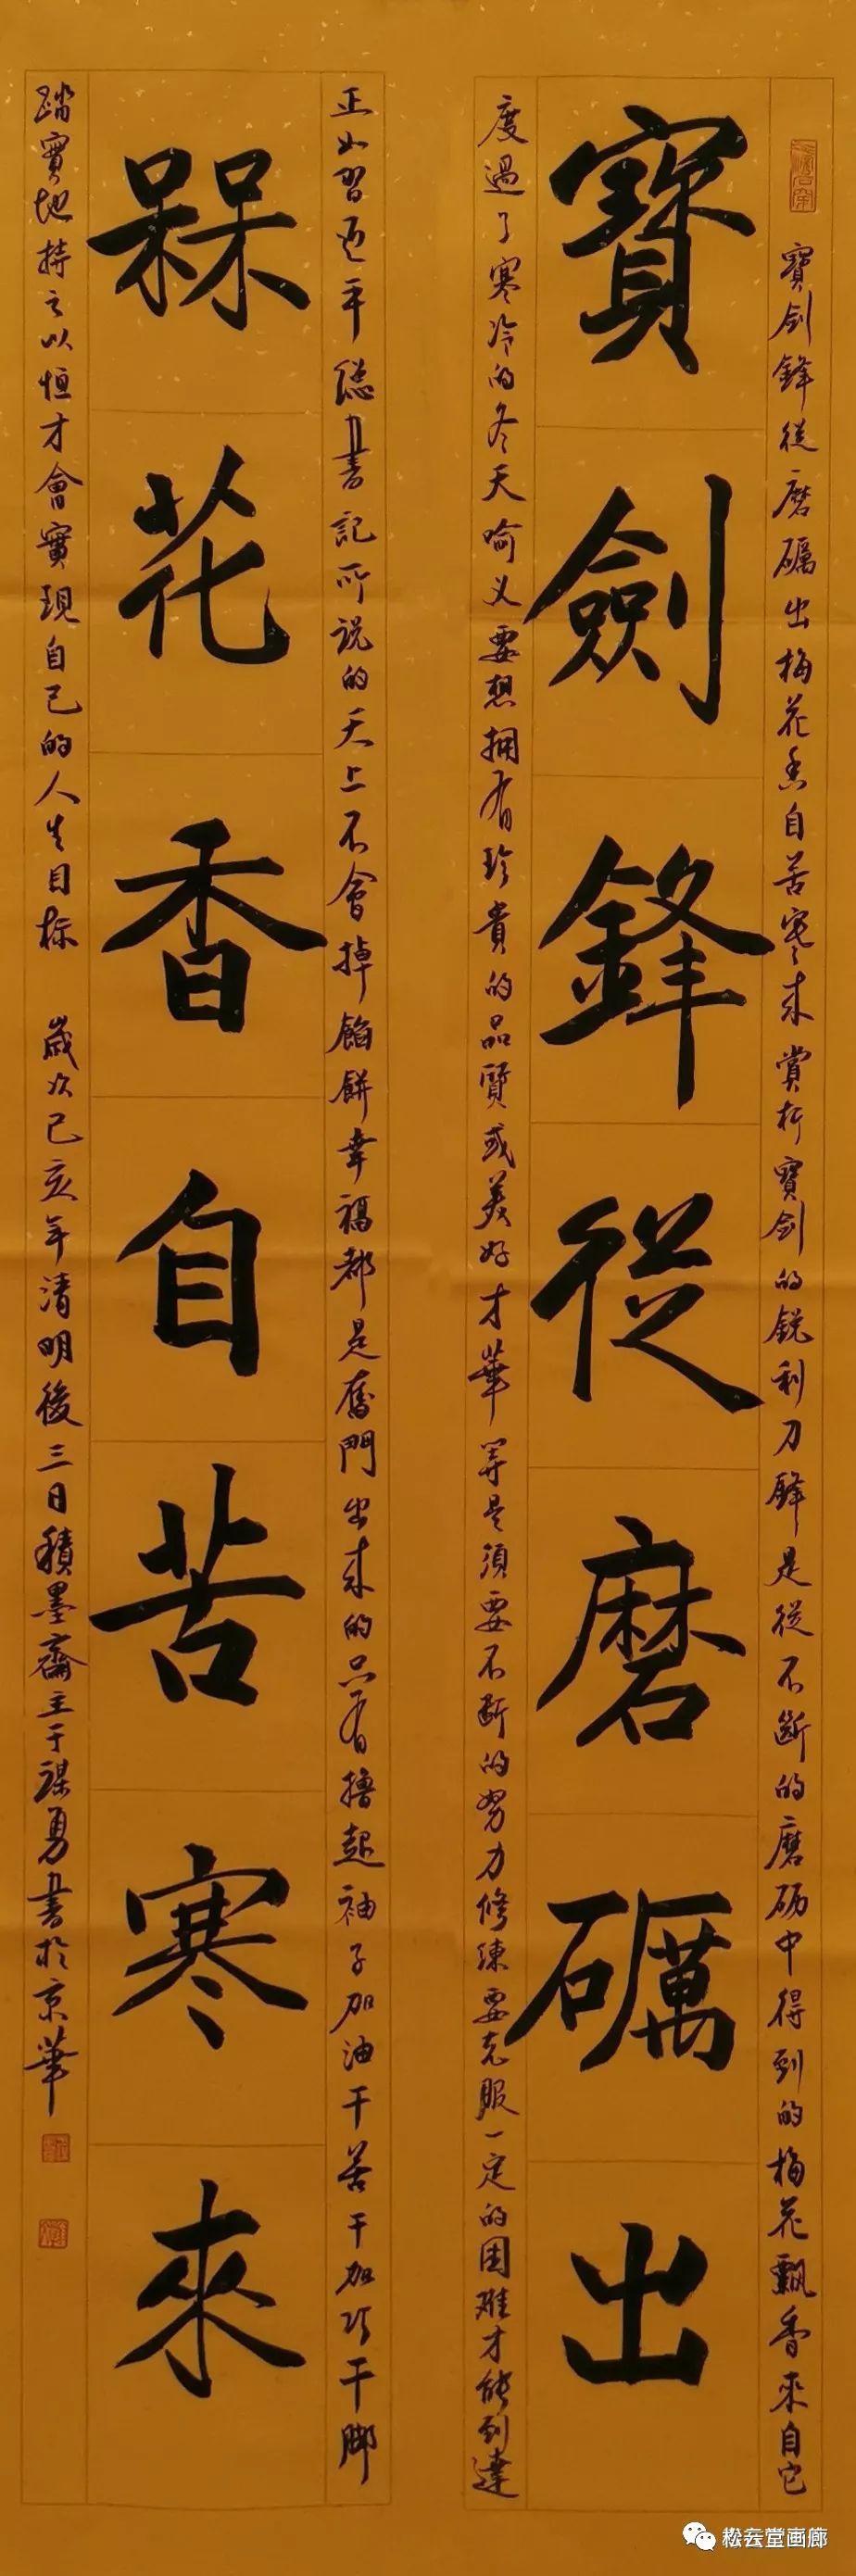 寶劍鋒從磨礪出
寶劍鋒從磨礪出梅花香自苦寒來賞析寶劍的銳利刀鋒是從不斷的磨砺中得到的梅花飄香來自它
度過了寒冷的冬天喻义要想擁有珍貴的品質或美好才華等是須要不斷的努力修練要克服一定的困难才能到達
槑花香自苦寒來
正如習近平總書記所说的天上不會掉餡餅幸福都是奮鬥出來的只有撸起袖子加油干苦干加巧干脚
踏實地持之以恒才會實現自己的人生目标 歲次己亥年清明後三日積墨齋主于謀勇書於京華
松云堂画廊